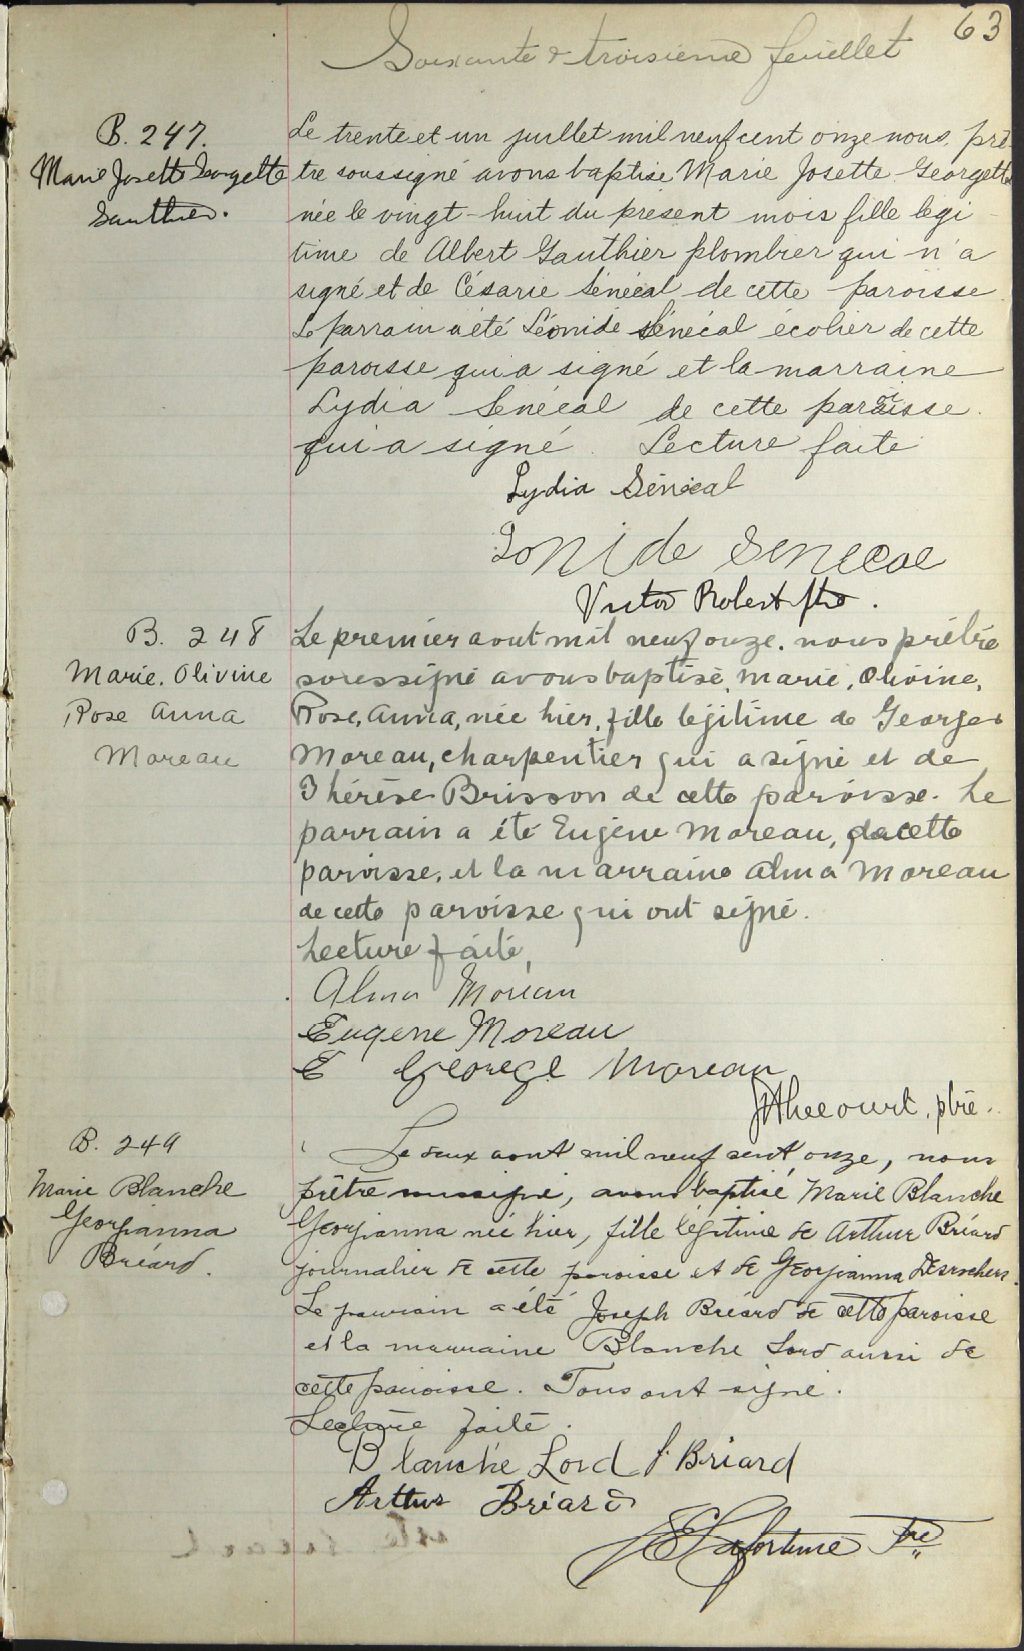 63
Soixante & troisième feuillet
B. 247.
Marie Josette Georgette
Gauthier.
Le trente et un juillet mil neuf cent onze nous, prê-
tre soussigné avons baptisé Marie Josette Georgette
née le vingt-huit du présent mois fille legi-
time de Albert Gauthier plombier qui n'a
signé et de Césarie Sénécal de cette paroisse.
Le parrain a été Léonide Sénécal écolier de cette
paroisse qui a signé et la marraine
Lydia Sénécal de cette paroisse.
qui a signé. Lecture faite
Lydia Sénécal
Lonide Senecal
Victor Robert ptre.
B. 248
Marie. Olivine
Rose Anna
Moreau
Le premier aout mil neuf onze. nous prêtre
soussigné avons baptisé, Marie, Olivine,
Rose, Anna, née hier, fille légitime de Georges
Moreau, charpentier qui a signé et de
Thérèse Brisson de cette paroisse. Le
parrain a été Eugène Moreau, de cette
paroisse, et la marraine Alma Moreau
de cette paroisse qui ont signé.
Lecture faite,
Alma Moreau
Eugene Moreau
E George Moreau
ptre.
B. 249
Marie Blanche
Georgianna
Bréard.
Le deux aout mil neuf cent onze, nous
prêtre soussigné, avons baptisé Marie Blanche
Georgianna née hier, fille légitime de Arthur Bréard
journalier de cette paroisse et de Georgianna Desrochers.
Le parrain a été Joseph Bréard de cette paroisse
et la marraine Blanche Lord aussi de
cette paroisse. Tous ont signé.
Lecture faite.
Blanche Lord J. Briard
Arthur Bréard
J E Lafortune Ptre